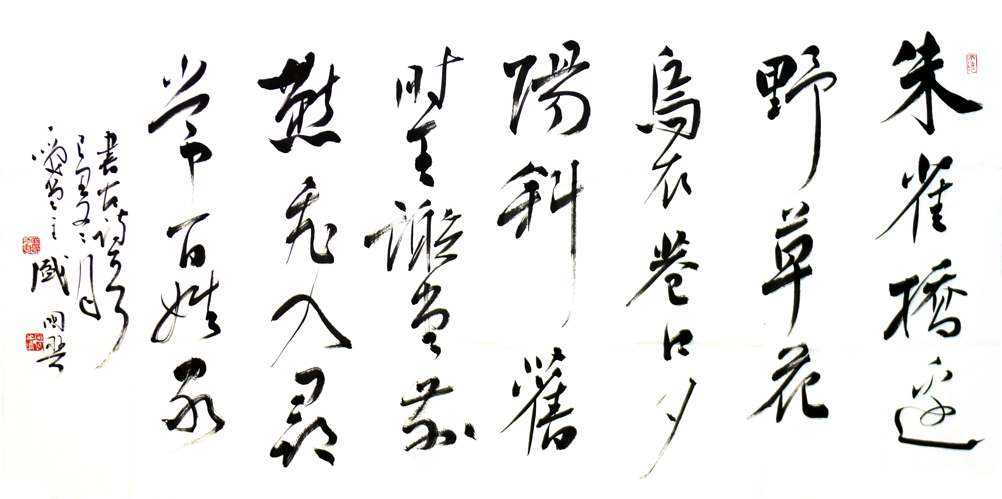 朱雀橋邊
野草花
烏衣巷口夕
陽斜舊
時王謝堂前
燕飛入尋
常百姓家
書古詩
己丑月
堂主